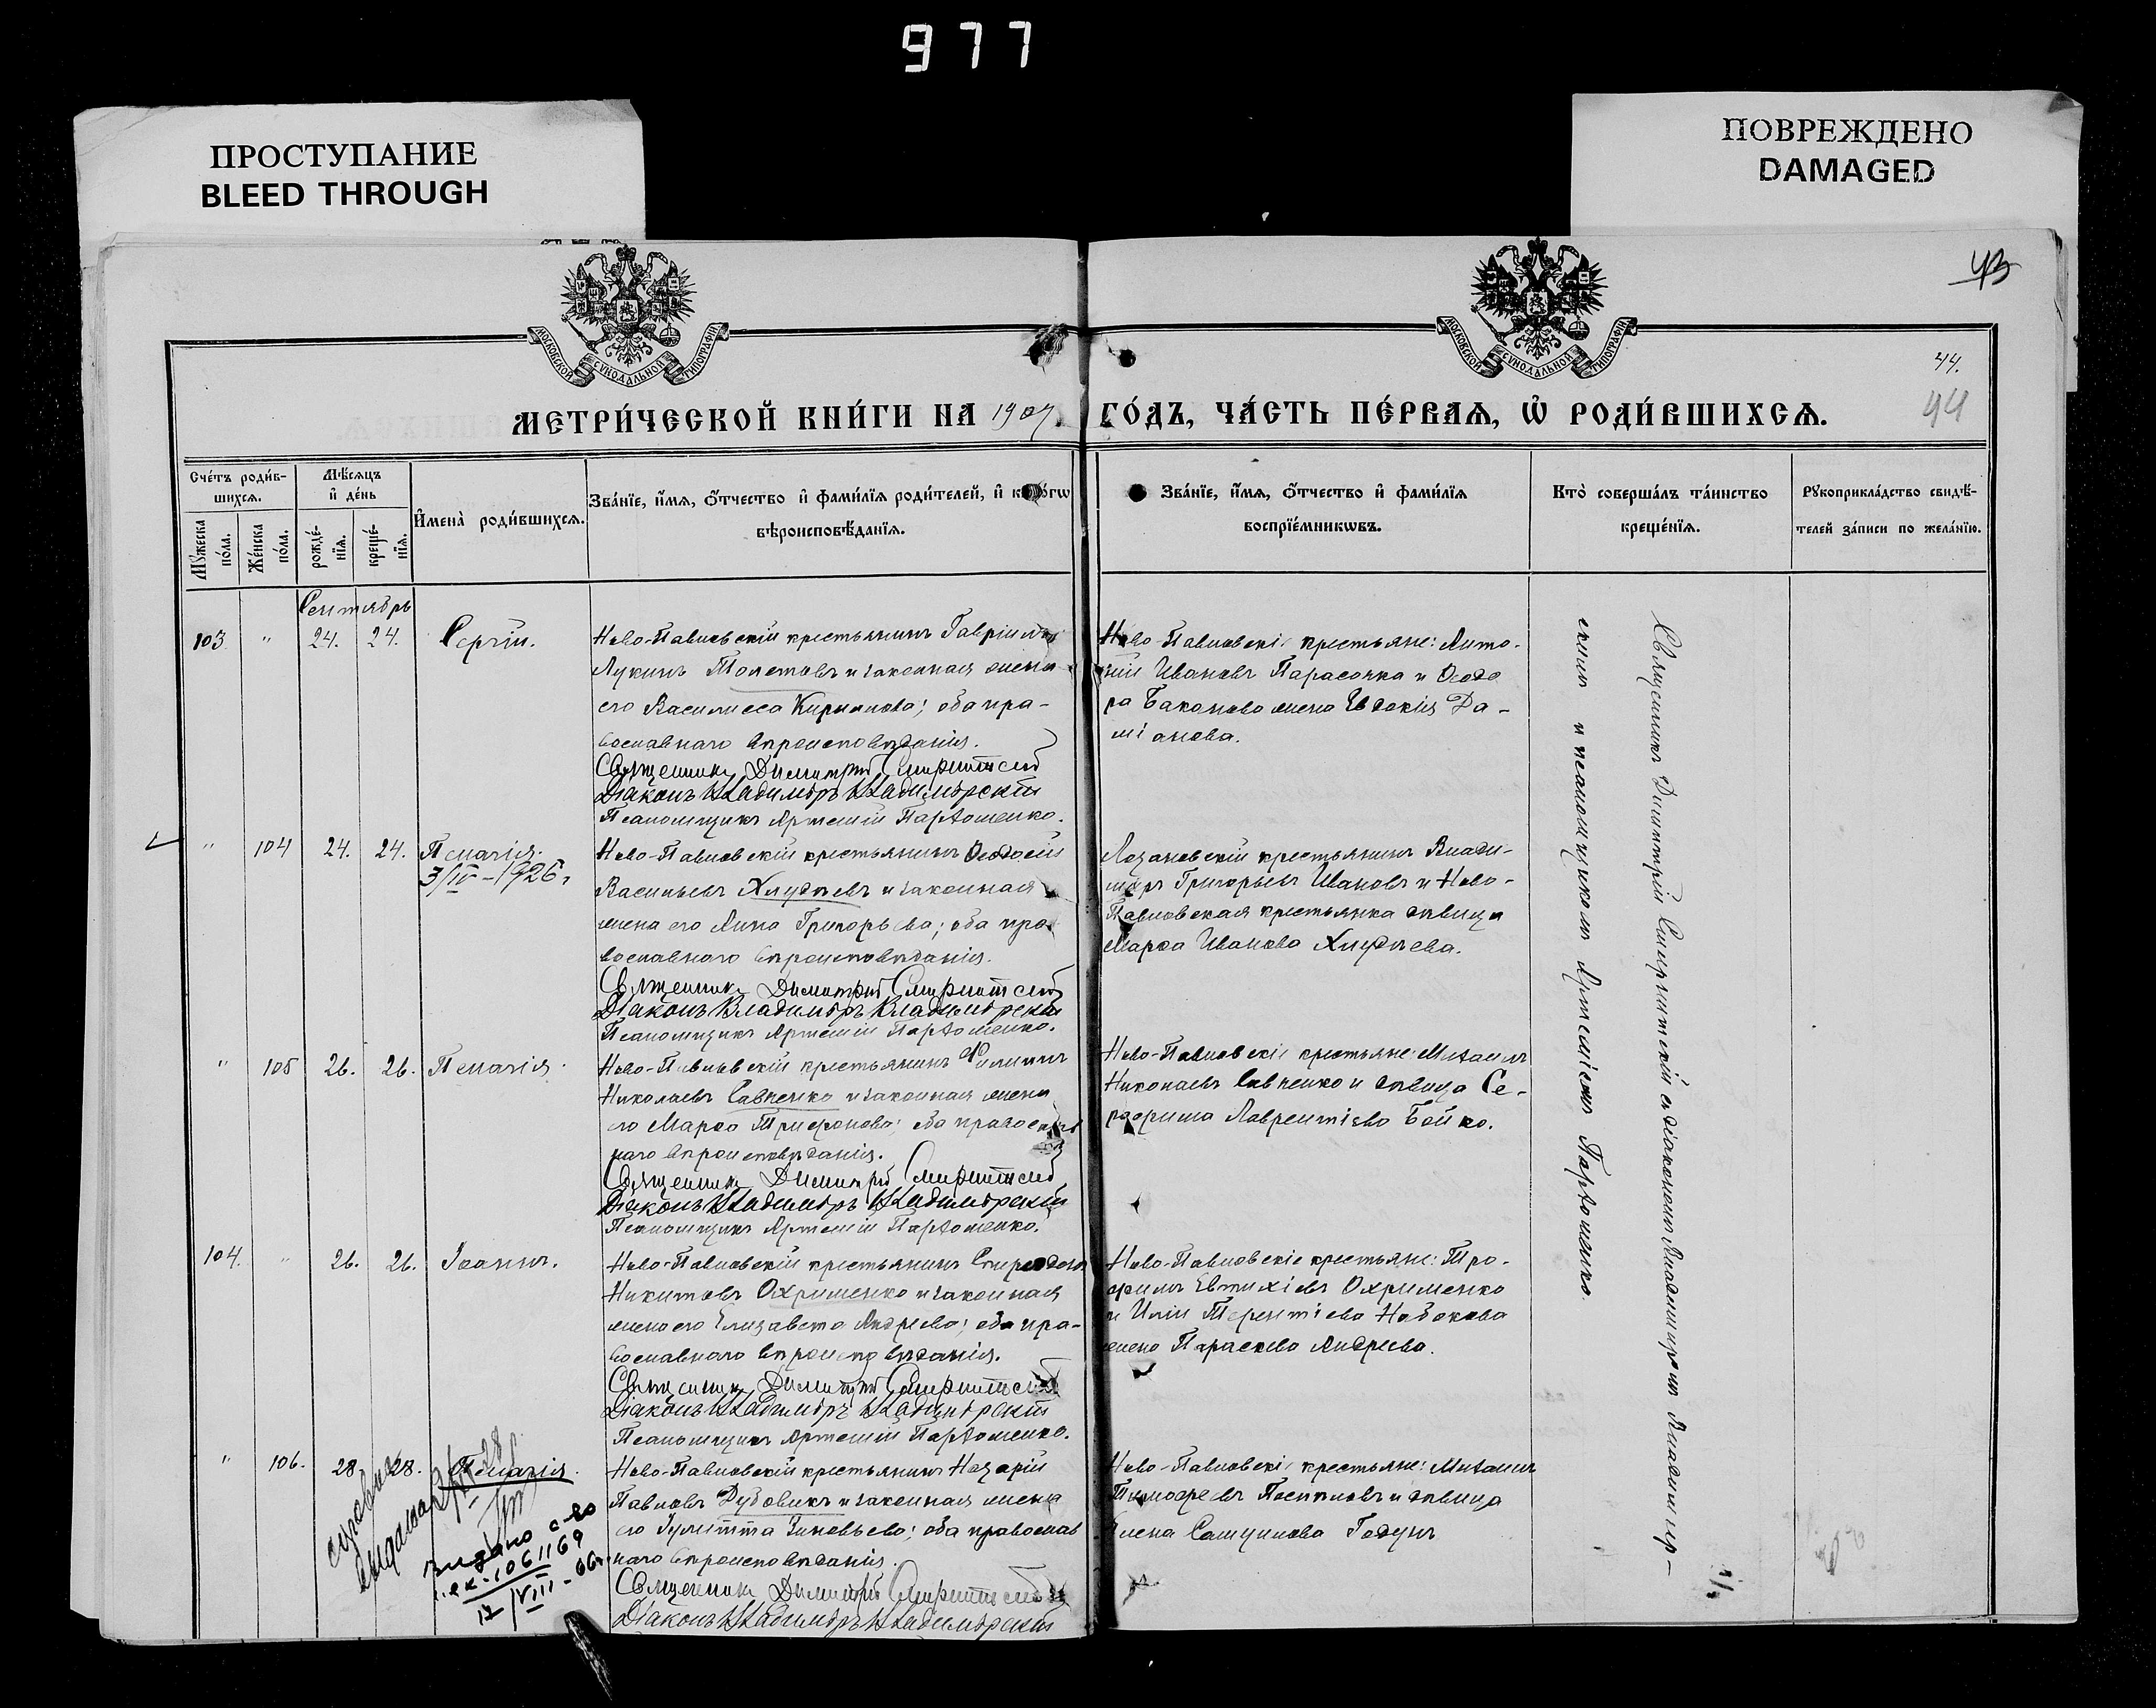 977
ПРОСТУПАНИЕ
BLEED THROUGH
ПОВРЕЖДЕНО
DAMAGED
43
МОСКОВСКОЙ СѴНОДАЛЬНОЙ ТИПОГРАФІИ
МОСКОВСКОЙ СѴНОДАЛЬНОЙ ТИПОГРАФІИ
44.
44
МЕТРИ́ЧЕСКОЙ КНИ́ГИ НА 1907. ГО́ДЪ, ЧА́СТЬ ПЕ́РВАЯ, Ѡ҆ РОДИ́ВШИХСЯ.
Сче́тъ роди́в-
шихся.
Мѣ́сяцъ
и҆ де́нь
Мꙋ́жеска
по́ла.
Же́нска
по́ла.
рожде́-
нїя.
креще́-
нїя.
И҆мена̀ роди́вшихся.
Зва́нїе, и҆́мя, ѻ҆́тчество и҆ фами́лїя роди́телей, и҆
вѣроисповѣ́данїя.
Зва́нїе, и҆́мя, ѻ҆́тчество и҆ фами́лїя
воспрїе́мникѡвъ.
Кто̀ соверша́лъ та́инство
креще́нїя.
Рꙋкоприкла́дство свидѣ́-
телей за́писи по жела́нїю.
Сентябрь
103 " 24. 24. Сергій.
Ново-Павловскій крестьянинъ Гавріилъ
Лукинъ Толстовъ и законная жена
его Василисса Кириллова; оба пра-
вославнаго вѣроисповѣданія.
Священникъ Димитрій
Діаконъ Владиміръ Владимірскій
Псаломщикъ Артемій Парѳоменко.
Ново-Павловскіе крестьяне: Анто-
ній Ивановъ Парасочка и Ѳеодо
ра Баканова жена Евдокія Да-
міанова.
" 104 24. 24. Пелагія.
3/IV-1926г
Ново-Павловскій крестьянинъ Ѳеодосій
Васильевъ Хлудѣевъ и законная
жена его Анна Григорьева; оба пра
вославнаго вѣроисповѣданія.
Священникъ Димитрій
Діаконъ Владиміръ Владимірскій
Псаломщикъ Артемій Парѳоменко.
крестьянинъ Влади-
міръ Григорьевъ Ивановъ и Ново-
Павловская крестьянка дѣвица
Марѳа Иванова Хлудѣева.
" 105 26. 26. Пелагія.
Ново-Павловскій крестьянинъ Филиппъ
Николаевъ Савченко и законная жена
его Марѳа Трифонова; оба православ
наго вѣроисповѣданія.
Священникъ Димитрій
Діаконъ Владиміръ Владимірскій
Псаломщикъ Артемій Парѳоменко.
Ново-Павловскіе крестьяне: Михаилъ
Николаевъ Савченко и дѣвица Се-
рафима Лаврентіева Бойко.
104. " 26. 26. Іоаннъ.
Ново-Павловскій крестьянинъ Спиридонъ
Никитовъ Охрименко и законная
жена его Елизавета Андреева; оба пра-
вославнаго вѣроисповѣданія.
Священникъ Димитрій
Діаконъ Владиміръ Владимірскій
Псаломщикъ Артемій Парѳоменко.
Ново-Павловскіе крестьяне: Тро-
фимъ Евтихіевъ Охрименко
и Иліи Терентіева Набокова
жена Параскева Андреева.
" 106. 28. 28. Пелагія.
Ново-Павловскій крестьянинъ Назарій
Павловъ Дубовикъ и законная жена
его Іулитта Зиновьева; оба православ
наго вѣроисповѣданія.
Священникъ Димитрій
Діаконъ Владиміръ Владимірскій
Ново-Павловскіе крестьяне: Михаилъ
Тимоѳеевъ Поспѣловъ и дѣвица
Елена Самуилова Годунъ
выдано
1061169
17/VIII-66г.
Священникъ Димитрій съ діакономъ Владиміромъ Владимір-
скимъ и псаломщикомъ Артеміемъ Парѳоменко.